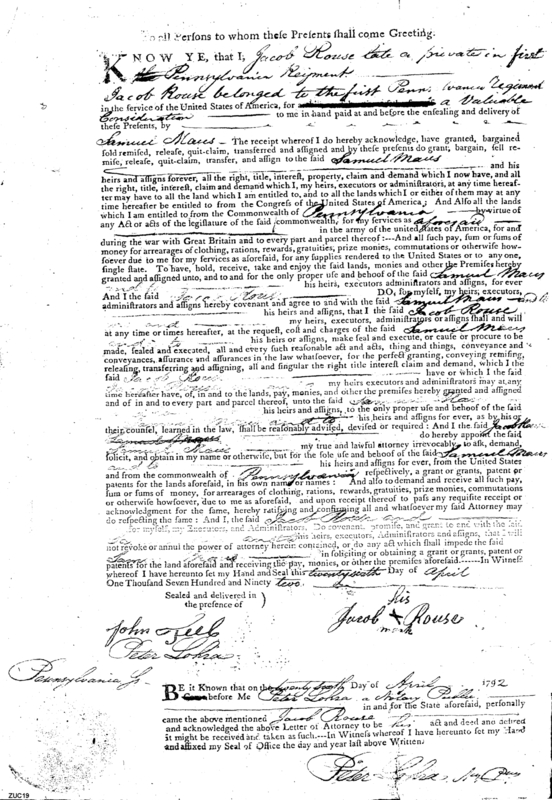 To all Persons to whom these Presents shall come Greeting.
KNOW YE, that I, Jacob Rouse late a private in first
the Pennsylvania Regiment
Jacob Rouse belonged to the first Pennsylvania Regiment
in the service of the United States of America, for a Valuable
Consideration to me in hand paid at and before the ensealing and delivery of
these Presents, by
Samuel Maus — The receipt whereof I do hereby acknowledge, have granted, bargained
sold remised, release, quit-claim, transferred and assigned and by these presents do grant, bargain, sell re-
mise, release, quit-claim, transfer, and assign to the said Samuel Maus
and his
heirs and assigns forever, all the right, title, interest, property, claim and demand which I now have, and all
the right, title, interest, claim and demand which I, my heirs, executors or administrators, at any time hereaf-
ter may have to all the land which I am entitled to, and to all the lands which I or either of them may at any
time hereafter be entitled to from the Congress of the United States of America,: And Also all the lands
which I am entitled to from the Commonwealth of Pennsylvania by virtue of
any Act or acts of the legislature of the said commonwealth, for my services as aforesaid
in the army of the united States of America, for and
during the war with Great Britain and to every part and parcel thereof :—And all such pay, sum or sums of
money for arrearages of clothing, rations, rewards, gratuities, prize monies, commutations or otherwise how-
soever due to me for my services as aforesaid, for any supplies rendered to the United States or to any one,
single state. To have, hold, receive, take and enjoy the said lands, monies and other the Premises hereby
granted and assigned unto, and to and for the only proper use and behoof of the said Samuel Maus
his heirs, executors administrators and assigns, for ever
And I the said Jacob Rouse DO, for myself, my heirs, executors,
administrators and assigns hereby covenant and agree to and with the said Samuel Maus and to
his heirs and assigns, that I the said Jacob Rouse
my heirs, executors, administrators or assigns shall and will
at any time or times hereafter, at the request, cost and charges of the said Samuel Maus
his heirs or assigns, make seal and execute, or cause or procure to be
made, sealed and executed, all and every such reasonable act and acts, thing and things, conveyance and
conveyances, assurance and assurances in the law whatsoever, for the perfect granting, conveying remising,
releasing, transferring and assigning, all and singular the right title interest claim and demand, which I the
said Jacob Rouse have or which I the said
my heirs executors and administrators may at any
time hereafter have, of, in and to the lands, pay, monies, and other the premises hereby granted and assigned
and of in and to every part and parcel thereof, unto the said Samuel Maus
his heirs and assigns, to the only proper use and behoof of the said
and to his heirs and assigns for ever, as by his or
their counsel, learned in the law, shall be reasonably advised, devised or required : And I the said Jacob Rouse
do hereby appoint the said
Samuel Maus my true and lawful attorney irrevocably, to ask, demand,
solicit, and obtain in my name or otherwise, but for the sole use and behoof of the said Samuel Maus
and to his heirs and assigns for ever, from the United States
and from the commonwealth of Pennsylvania respectively, a grant or grants, patent or
patents for the lands aforesaid, in his own name or names : And also to demand and receive all such pay,
sum or sums of money, for arrearages of clothing, rations, rewards, gratuities, prize monies, commutations
or otherwise howsoever, due to me as aforesaid, and upon receipt thereof to pass any requisite receipt or
acknowledgment for the same, hereby ratifying and confirming all and whatsoever my said Attorney may
do respecting the same : And I, the said Jacob Rouse and
for myself, my Executors, and Administrators, Do covenant, promise, and grant to and with the said
his heirs, executors, Administrators and assigns, that I will
not revoke or annul the power of attorney herein contained, or do any act which shall impede the said
in soliciting or obtaining a grant or grants, patent or
patents for the land aforesaid and receiving the pay, monies, or other the premises aforesaid.------In Witness
whereof I have hereunto set my Hand and Seal this twenty sixth Day of April
One Thousand Seven Hundred and Ninety two.
Sealed and delivered in
the presence of
his
Jacob X Rouse
mark
John
Peter Lohra
Pennsylvania
BE it Known that on the twenty sixth Day of April 1792
before Me Peter Lohra a Notary Public
in and for the State aforesaid, personally
came the above mentioned Jacob Rouse
and acknowledged the above Letter of Attorney to be his act and deed and desired
it might be received and taken as such.---In Witness whereof I have hereunto set my Hand
and affixed my Seal of Office the day and year last above Written.
Peter Lohra
ZUC19